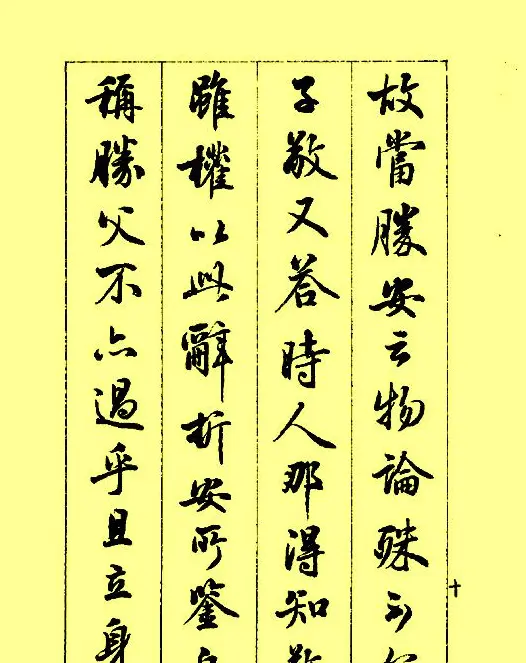 故當勝安云物論殊不
子敬又答時人那得知
雖權以此辭折安所鑒
稱勝父不亦過乎且立身
十